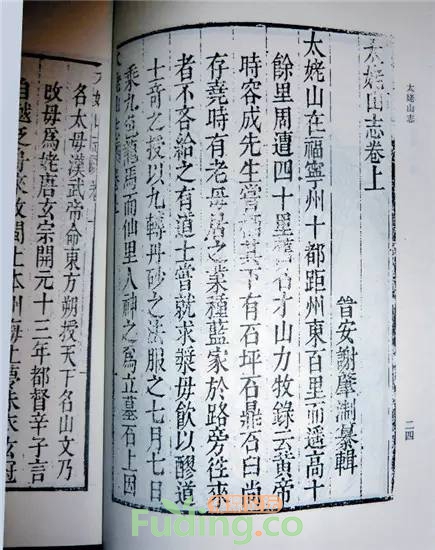 太姥山志
二四
太姥山志卷上
晉安謝肇淛纂輯
太姥山在福寧州十都距州東百里而遥高十
餘里周遭四十里舊名才山力牧錄云黃帝
時容成先生嘗棲其下有石坪石鼎石臼尚
存堯時有老母居之業種藍家於路旁往來
者不吝給之有道士嘗就求漿母飲以醪道
士奇之授以九轉丹砂之法服之七月七日
乘九色龍馬而仙里人神之爲立墓石上因
名太母漢武帝命東方朔授天下名山文乃
改母爲姥唐玄宗開元十三年都督辛子言
自越泛舟來牧閩止本州海上夢朱衣玄冠
Fuding.co